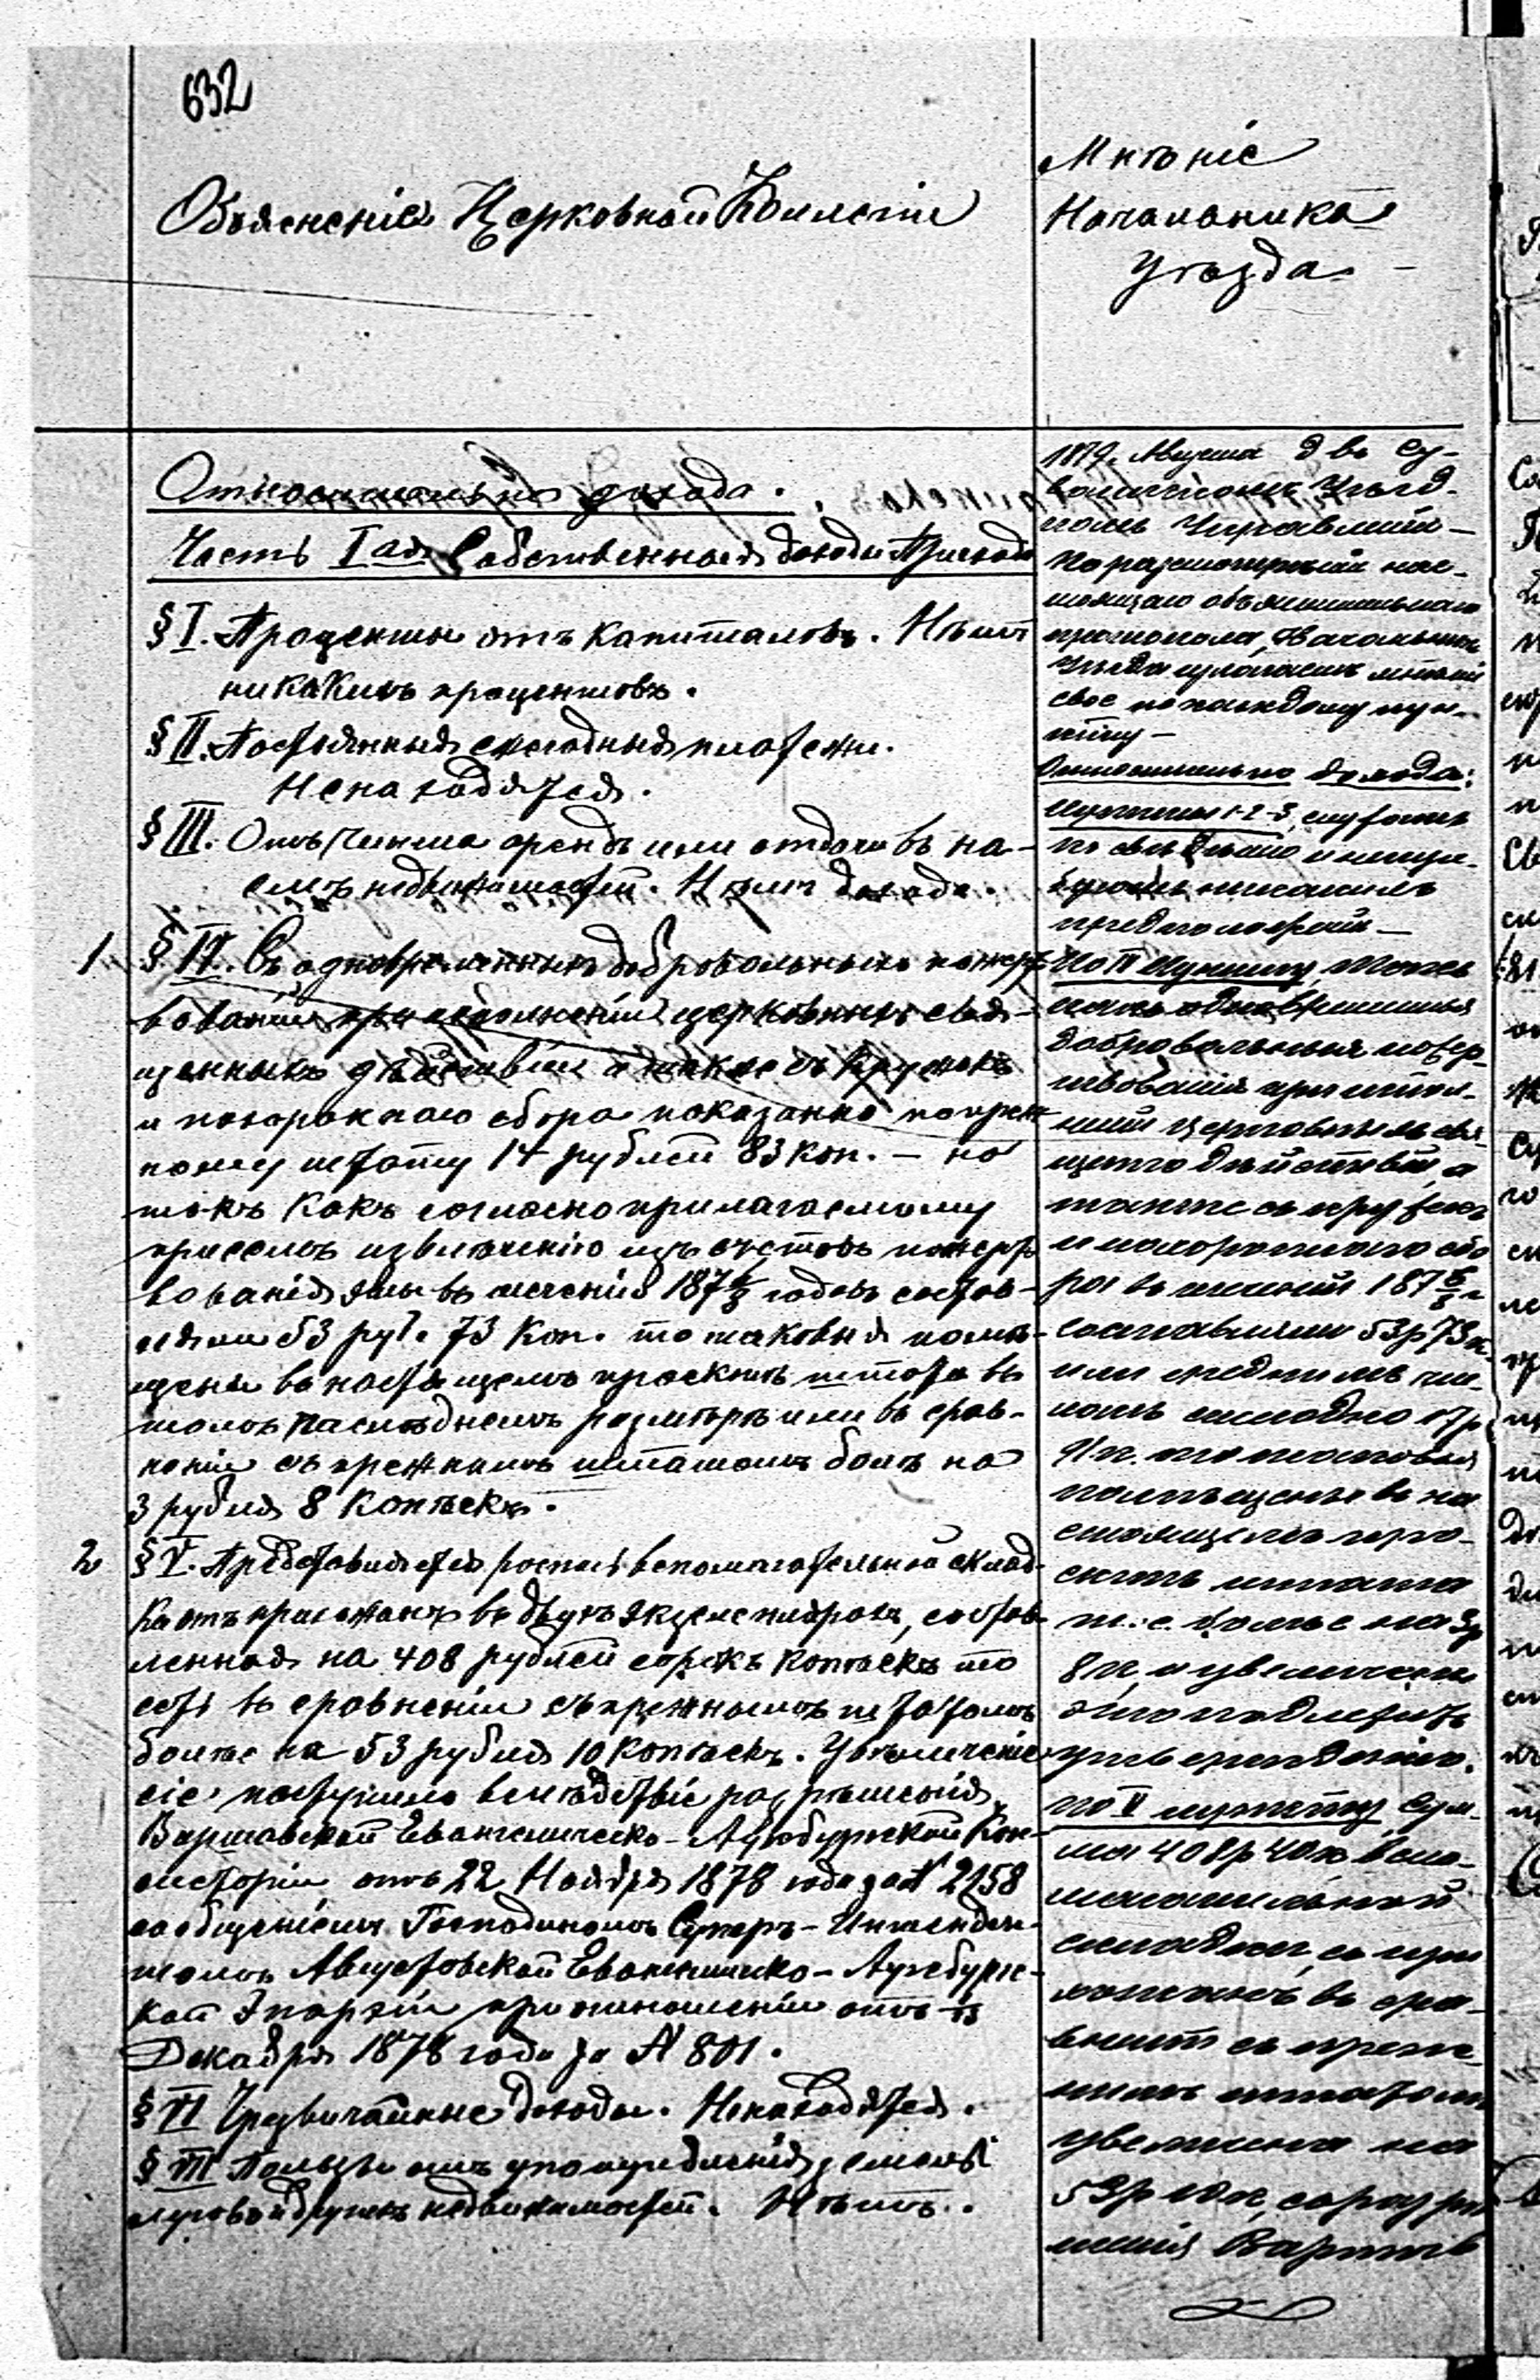 632
Объясненіе Церковной Коллегіи
Относительно дохода.
Часть Iая Собственныя доходы Прихода
§ I. Проценты отъ капиталовъ. Нѣтъ
никакихъ процентовъ.
§ II. Постоянныя ежегодныя платежи.
Ненаходятся.
§ III. Отъ чинша арендъ или отдачи въ на-
емъ недвижимостей. Нѣтъ дохода.
1 § IV. Съ одновременныхъ добровольныхъ пожерт-
вованій при исполненіи церковныхъ свя-
щенныхъ дѣйствій а также съ кружекъ
и похороннаго сбора показанно по преж-
нему штату 14 рублей 83 коп. — но
такъ какъ согласно прилагаемому
присемъ извлеченію изъ счетовъ пожерт-
вованія эти въ теченіи 187 6/8 годовъ состав-
ляли 53 руб. 73 коп. то таковыя помѣ-
щены въ настоящемъ проектѣ штата въ
томъ послѣднемъ размѣрѣ или въ срав-
неніи съ прежнимъ штатомъ болѣ на
3 рубля 8 копѣекъ.
2 § V. Представляется роспись вспомогательной склад-
ки отъ прихожанъ въ двухъ экземплярахъ, состав-
ленная на 408 рублей сорокъ копѣекъ то
есть въ сравненіи съ прежнымъ штатомъ
болѣе на 53 рубля 10 копѣекъ. Увеличеніе
сіе поступило вслѣдствіе разрѣшенія
Варшавской Евангелическо-Аугсбургской Кон-
систоріи отъ 22 Ноября 1878 года за № 2158
сообщеніемъ Господиномъ Суперъ-Интенден-
томъ Августовской Евангелическо-Аугсбургс-
кой Эпархіи при отношеніи отъ
Декабря 1878 года за № 801.
§ VI Чрезвычайные доходы. Ненаходятся.
§ VII Пользы отъ употребленія земель
луговъ и другихъ недвижимостей. Нѣтъ.
Мнѣніе
Начальника
Уѣзда
1879 г. Августа дня Су-
валкскомъ Уѣзд-
номъ Управленіи
По разсмотреніи нас-
тоящаго объяснительнаго
протокола, Начальникъ
Уѣзда излагаетъ мнѣніе
свое по каждому пун-
кту —
Относительно дохода:
Пункты 1-2-3, служатъ
къ свѣдѣнію и нетре-
буютъ никакихъ
предположеній —
По IV Пункту, Такъ
какъ одновременныя
добровольныя пожер-
твованія при испол-
неніи церковныхъ свя-
щенно дѣйствій, а
также съ кружекъ
и похороннаго сбо
ра въ теченіи 187 6/8 г
составляли 53р 73к.
или среднимъ чис-
ломъ ежегодно 17р
91к. то таковыя
помѣщены въ на
стоящемъ про-
ектѣ штата
т. е. болѣе на 3р
8 к, и увеличеніе
это подлежитъ
утвержденію.
По V пункту Сум-
ма 408р 40к вспо-
могательной
складки, съ при
хожанъ въ сра-
вненіи съ преж-
нимъ штатомъ
увеличена на
53р 10к, съ разрѣ
шенія Варшав